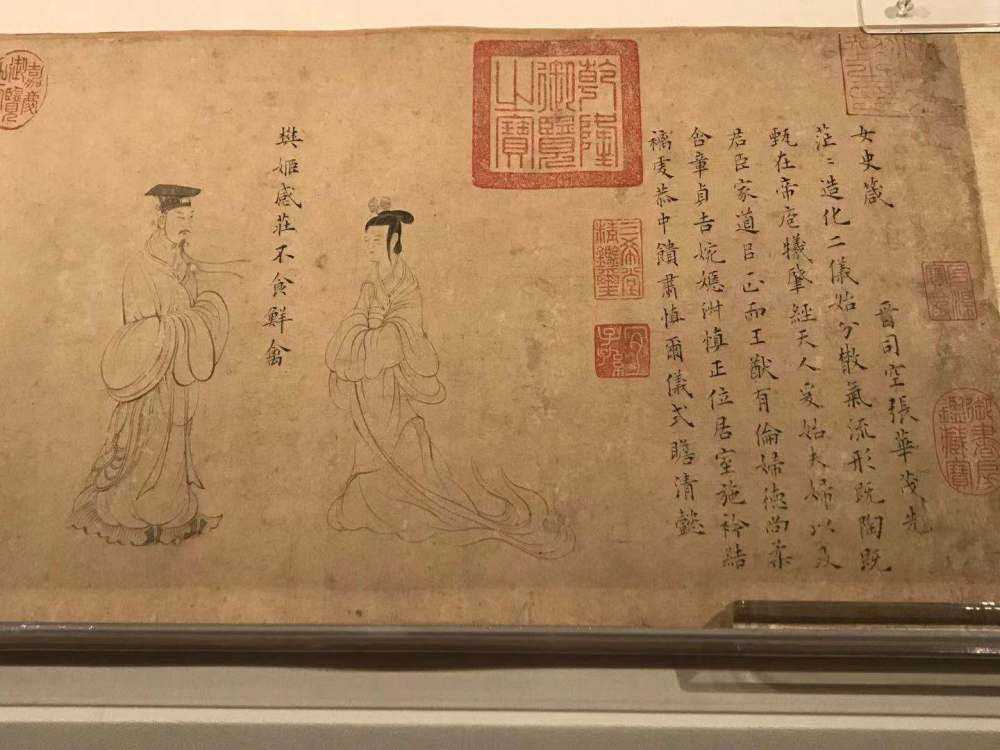 女史箴
晉司空張華茂先
茫〻造化二儀始分散氣流形既陶既
甄在帝庖犧肇經天人爰始夫婦以及
君臣家道㠯正而王猷有倫婦德尚柔
含章貞吉婉嫕淑慎正位居室施衿結
褵虔恭中饋肅慎爾儀式瞻清懿
乾隆御覽之寶
三希堂精鑑璽
宜子孫
石渠寶笈
御書房鑑藏寶
樊姬感莊不食鮮禽
嘉慶御覽